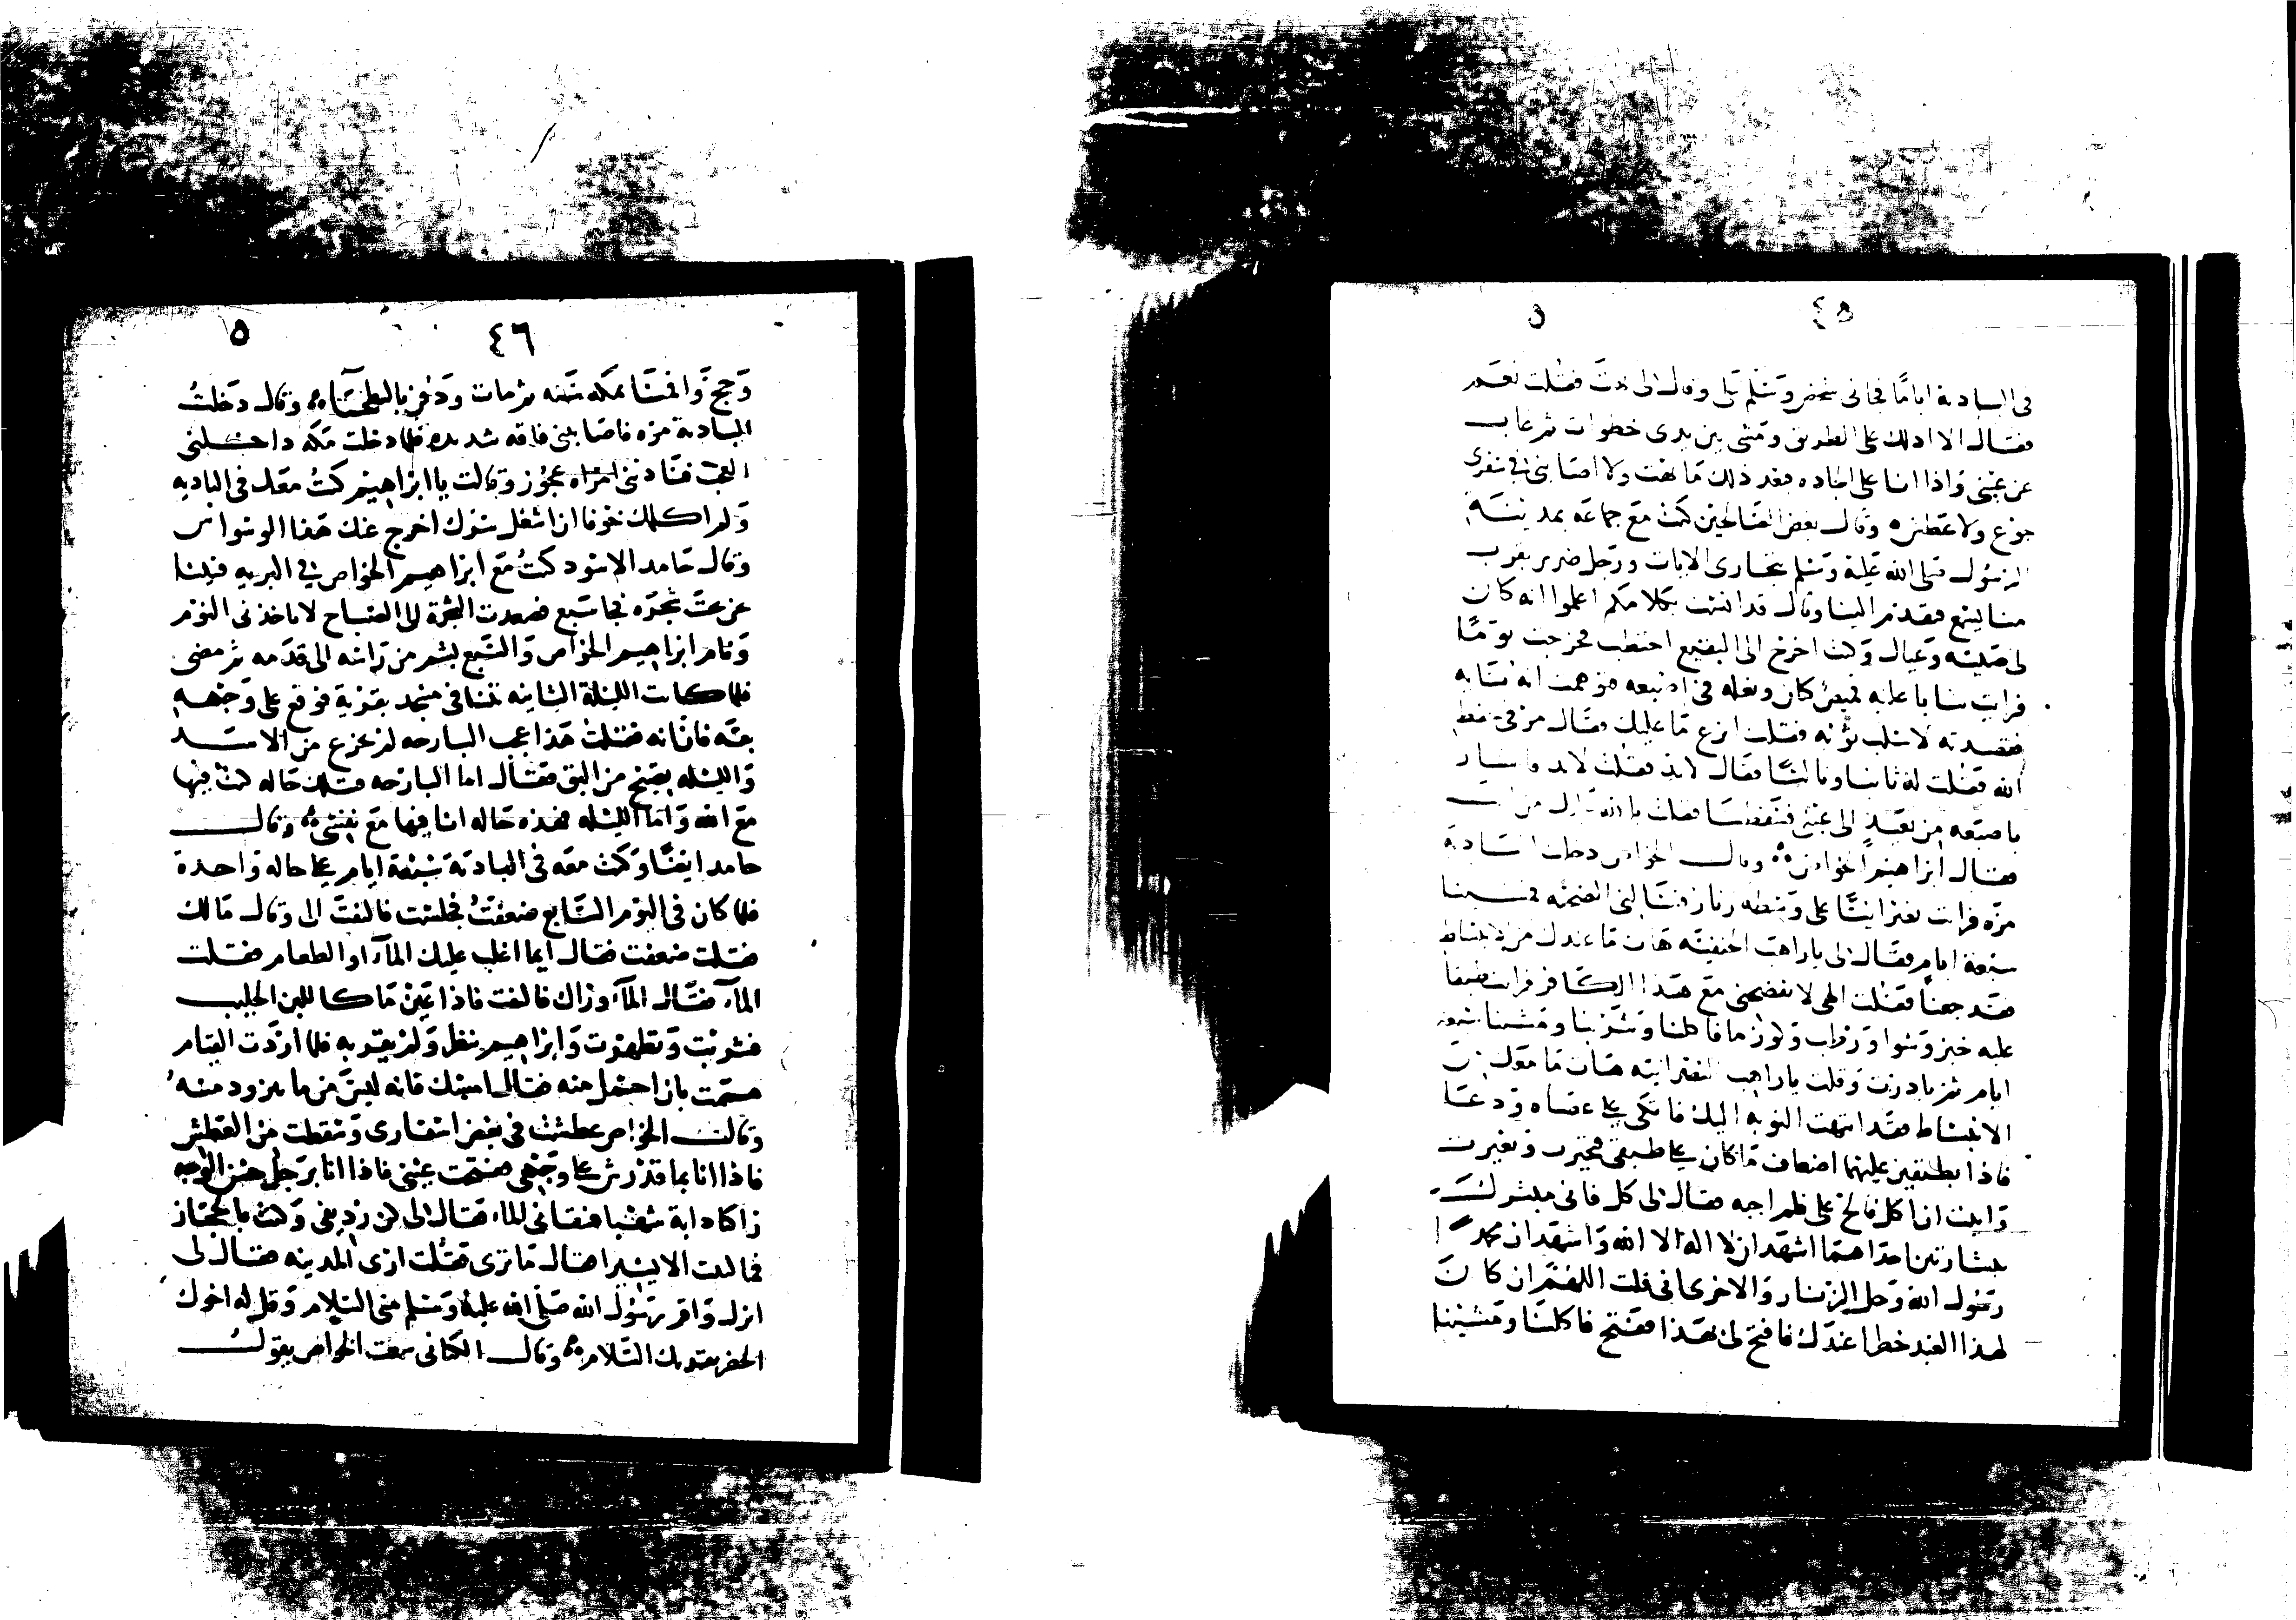 ٤٥
في البادية اياما فجاني شخص وسلم علي وقال لي تهت فقلت نعم
فقال الا ادلك على الطريق ومشى بين يدي خطوات ثم غاب
عن عيني واذا انا على الجاده فبعد ذلك ما تهت ولا اصابني في سفري
جوع ولا عطش وقال بعض الصالحين كنت مع جماعه بمدينة
الرسول صلى الله عليه وسلم نتجارى الايات ورجل ضرير بقرب
منا يسمع فتقدم الينا وقال قد انست بكلامكم اعلموا انه كان
لي صبية وعيال وكنت اخرج الى البقيع احتطب فخرجت يوما
فرايت شابا عليه قميص كتان ونعله في اصبعه فتوهمت انه تايه
فقصدته لاسلب ثوبه فقلت انزع ما عليك فقال مر في حفظ
الله فقلت له ثانيا وثالثا فقال لابد فقلت لابد فاشار
باصبعه من بعيد الى عيني فسقطتا فقلت بالله من انت
فقال ابراهيم الخواص وقال الخواص دخلت البادية
مرة فرايت نصرانيا على وسطه زنار فسالني الصحبة فمشينا
سبعة ايام فقال لي يا راهب الحنيفية هات ما عندك من الانبساط
فقد جعنا فقلت الهي لا تفضحني مع هذا الكافر فرايت طبقا
عليه خبز وشوا ورطب وكوز ما فاكلنا وشربنا ومشينا سبعة
ايام ثم بادرت وقلت يا راهب النصرانية هات ما عندك من
الانبساط فقد انتهت النوبة اليك فاتكى على عصاه ودعا
فاذا بطبقين عليهما اضعاف ما كان على طبقي فتحيرت وتغيرت
وابيت ان اكل فالح علي فلم اجبه فقال لي كل فاني مبشرك
ببشارتين احداهما اشهد ان لا اله الا الله واشهد ان محمدا
رسول الله وحل الزنار والاخرى اني قلت اللهم ان كان
لهذا العبد خطرا عندك فافتح لي بهذا ففتح فاكلنا ومشينا
٤٦
وحج واقمنا بمكه سنه ثم مات ودفن بالبطحا وقال دخلت
البادية مره فاصابتني فاقه شديده فلما دخلت مكه داخلني
العجب فنادتني امراه عجوز وقالت يا ابراهيم كنت معك في البادیه
ولم اكلمك خوفا ان اشغل سرك اخرج عنك هذا الوسواس
وقال حامد الاسود كنت مع ابراهيم الخواص في البريه فبتنا
عن تحت شجره فجا سبع فصعدت الشجرة الى الصباح لا ياخذني النوم
ونام ابراهيم الخواص والسبع يشم من راسه الى قدمه ثم مضى
فلما كانت الليلة الثانيه بتنا في مسجد بقرية فوقع على وجهه
بقه فان انه فقلت هذا عجب البارحه لم تجزع من الاسد
والليله تصيح من البق فقال اما البارحه فتلك حاله كنت فيها
مع الله واما الليله فهذه حاله انا فيها مع نفسي وقال
حامد ايضا وكنت معه في البادية سبعة ايام على حاله واحدة
فلما كان في اليوم السابع ضعفت فجلست فالتفت الي وقال مالك
فقلت ضعفت فقال ايما اغلب عليك الماء او الطعام فقلت
الماء فقال الماء وراك فالتفت فاذا عين ما كاللبن الحليب
فشربت وتطهرت وابراهيم ينظر ولم يقربه فلما اردت القيام
هممت بان احتمل منه فقال امسك فانه ليس من ما يتزود منه
وقال الخواص عطشت في بعض اسفاري وسقطت من العطش
فاذا انا بما قد رش على وجهي ففتحت عيني فاذا انا برجل حسن الوجه
راكبا دابة شهبا فسقاني الماء فقال لي كن رديفي وكنت بالحجاز
فما لبثت الا يسيرا فقال ما ترى فقلت ارى المدينه فقال لي
انزل واقر رسول الله صلى الله عليه وسلم مني السلام وقل له اخوك
الخضر يقريك السلام وقال الكتاني سمعت الخواص يقول